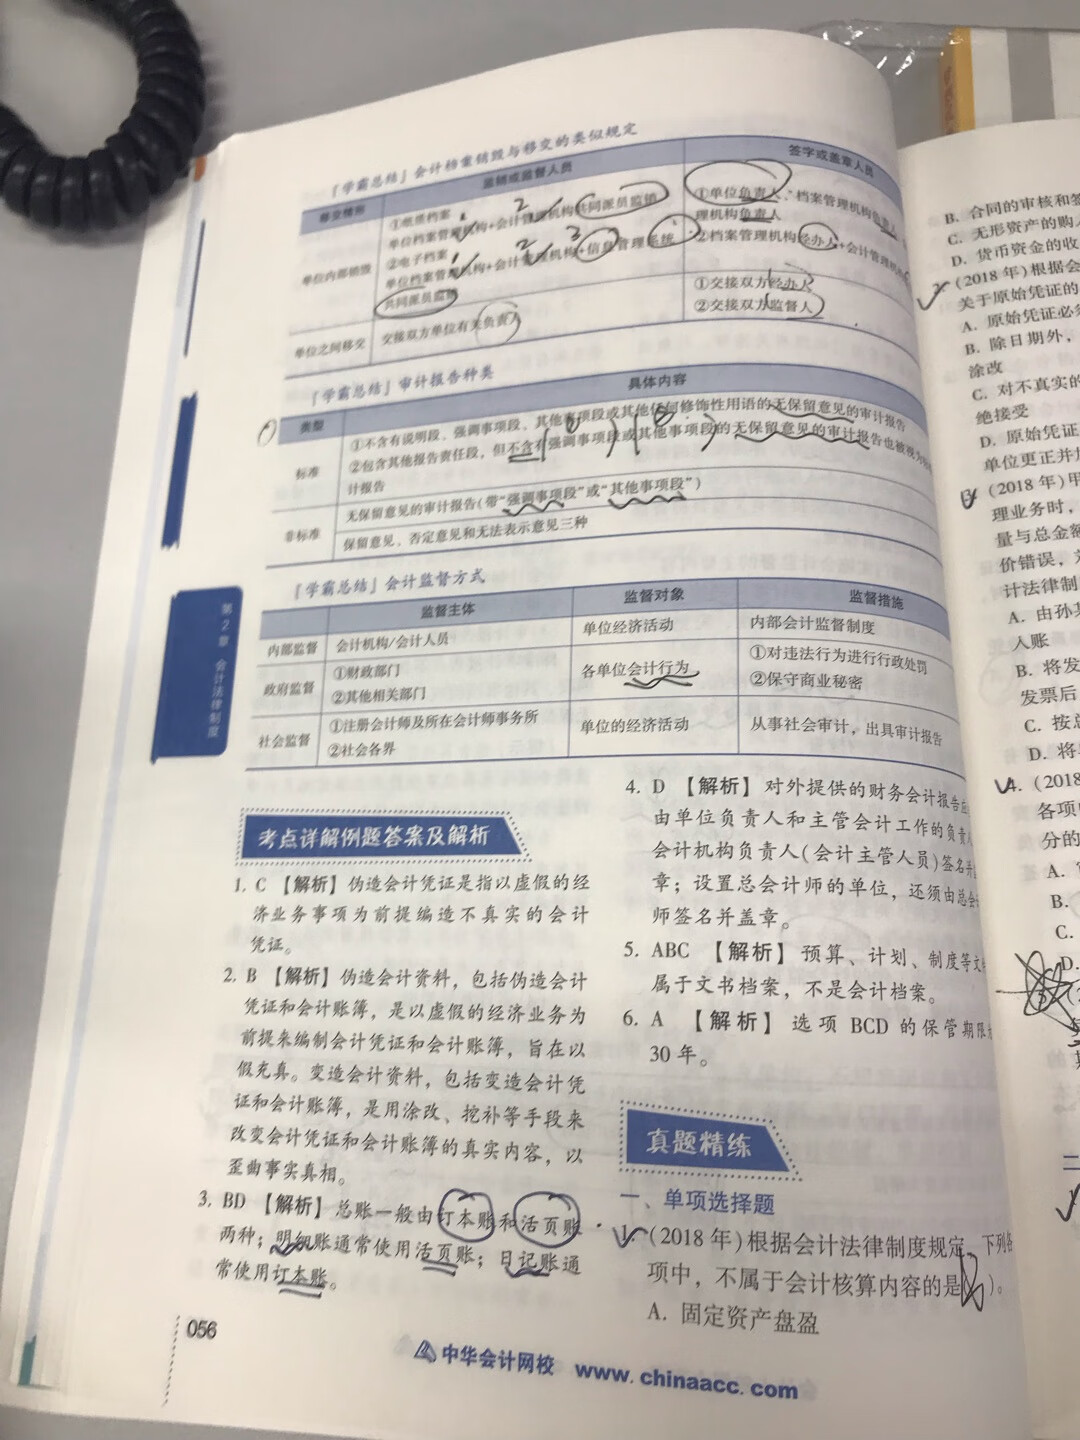 「学霸总结」会计档案销毁与移交的类似规定
移交情形 监销或监督人员 签字或盖章人员
单位内部销毁
①纸质档案
单位档案管理机构+会计管理机构共同派员监销
②电子档案
单位档案管理机构+会计管理机构+信息管理系统
共同派员监销
①单位负责人、档案管理机构负责人
理机构负责人
②档案管理机构经办人+会计管理机构
单位之间移交 交接双方单位有关负责人
①交接双方经办人
②交接双方监督人
「学霸总结」审计报告种类
类型 具体内容
标准
①不含有说明段、强调事项段、其他事项段或其他任何修饰性用语的无保留意见的审计报告
②包含其他报告责任段,但不含有强调事项段或其他事项段的无保留意见的审计报告也被视为
计报告
非标准
无保留意见的审计报告(带“强调事项段”或“其他事项段”)
保留意见、否定意见和无法表示意见三种
「学霸总结」会计监督方式
监督主体 监督对象 监督措施
内部监督 会计机构/会计人员 单位经济活动 内部会计监督制度
政府监督
①财政部门
②其他相关部门
各单位会计行为
①对违法行为进行行政处罚
②保守商业秘密
社会监督
①注册会计师及所在会计师事务所
②社会各界
单位的经济活动 从事社会审计,出具审计报告
第2章 会计法律制度
考点详解例题答案及解析
1. C 【解析】 伪造会计凭证是指以虚假的经
济业务事项为前提编造不真实的会计
凭证。
2. B 【解析】 伪造会计资料,包括伪造会计
凭证和会计账簿,是以虚假的经济业务为
前提来编制会计凭证和会计账簿,旨在以
假充真。变造会计资料,包括变造会计凭
证和会计账簿,是用涂改、挖补等手段来
改变会计凭证和会计账簿的真实内容,以
歪曲事实真相。
3. BD 【解析】 总账一般由订本账和活页账
两种;明细账通常使用活页账;日记账通
常使用订本账。
4. D 【解析】 对外提供的财务会计报告应
由单位负责人和主管会计工作的负责人
会计机构负责人(会计主管人员)签名并
章;设置总会计师的单位,还须由总会
师签名并盖章。
5. ABC 【解析】 预算、计划、制度等文
属于文书档案,不是会计档案。
6. A 【解析】 选项 BCD 的保管期限
30 年。
真题精练
一、单项选择题
1. (2018 年)根据会计法律制度规定,下列各
项中,不属于会计核算内容的是(B)。
A. 固定资产盘盈
056
中华会计网校 www.chinaacc.com
B. 合同的审核和
C. 无形资产的购
D. 货币资金的收
(2018 年)根据会
关于原始凭证的
A. 原始凭证必
B. 除日期外,
涂改
C. 对不真实的
绝接受
D. 原始凭证
单位更正并
(2018 年)甲
理业务时,
量与总金额
价错误,
计法律制
A. 由孙
入账
B. 将发
发票后
C. 按总
D. 将
4. (2018
各项
分的
A.
B.
C.
D.
二